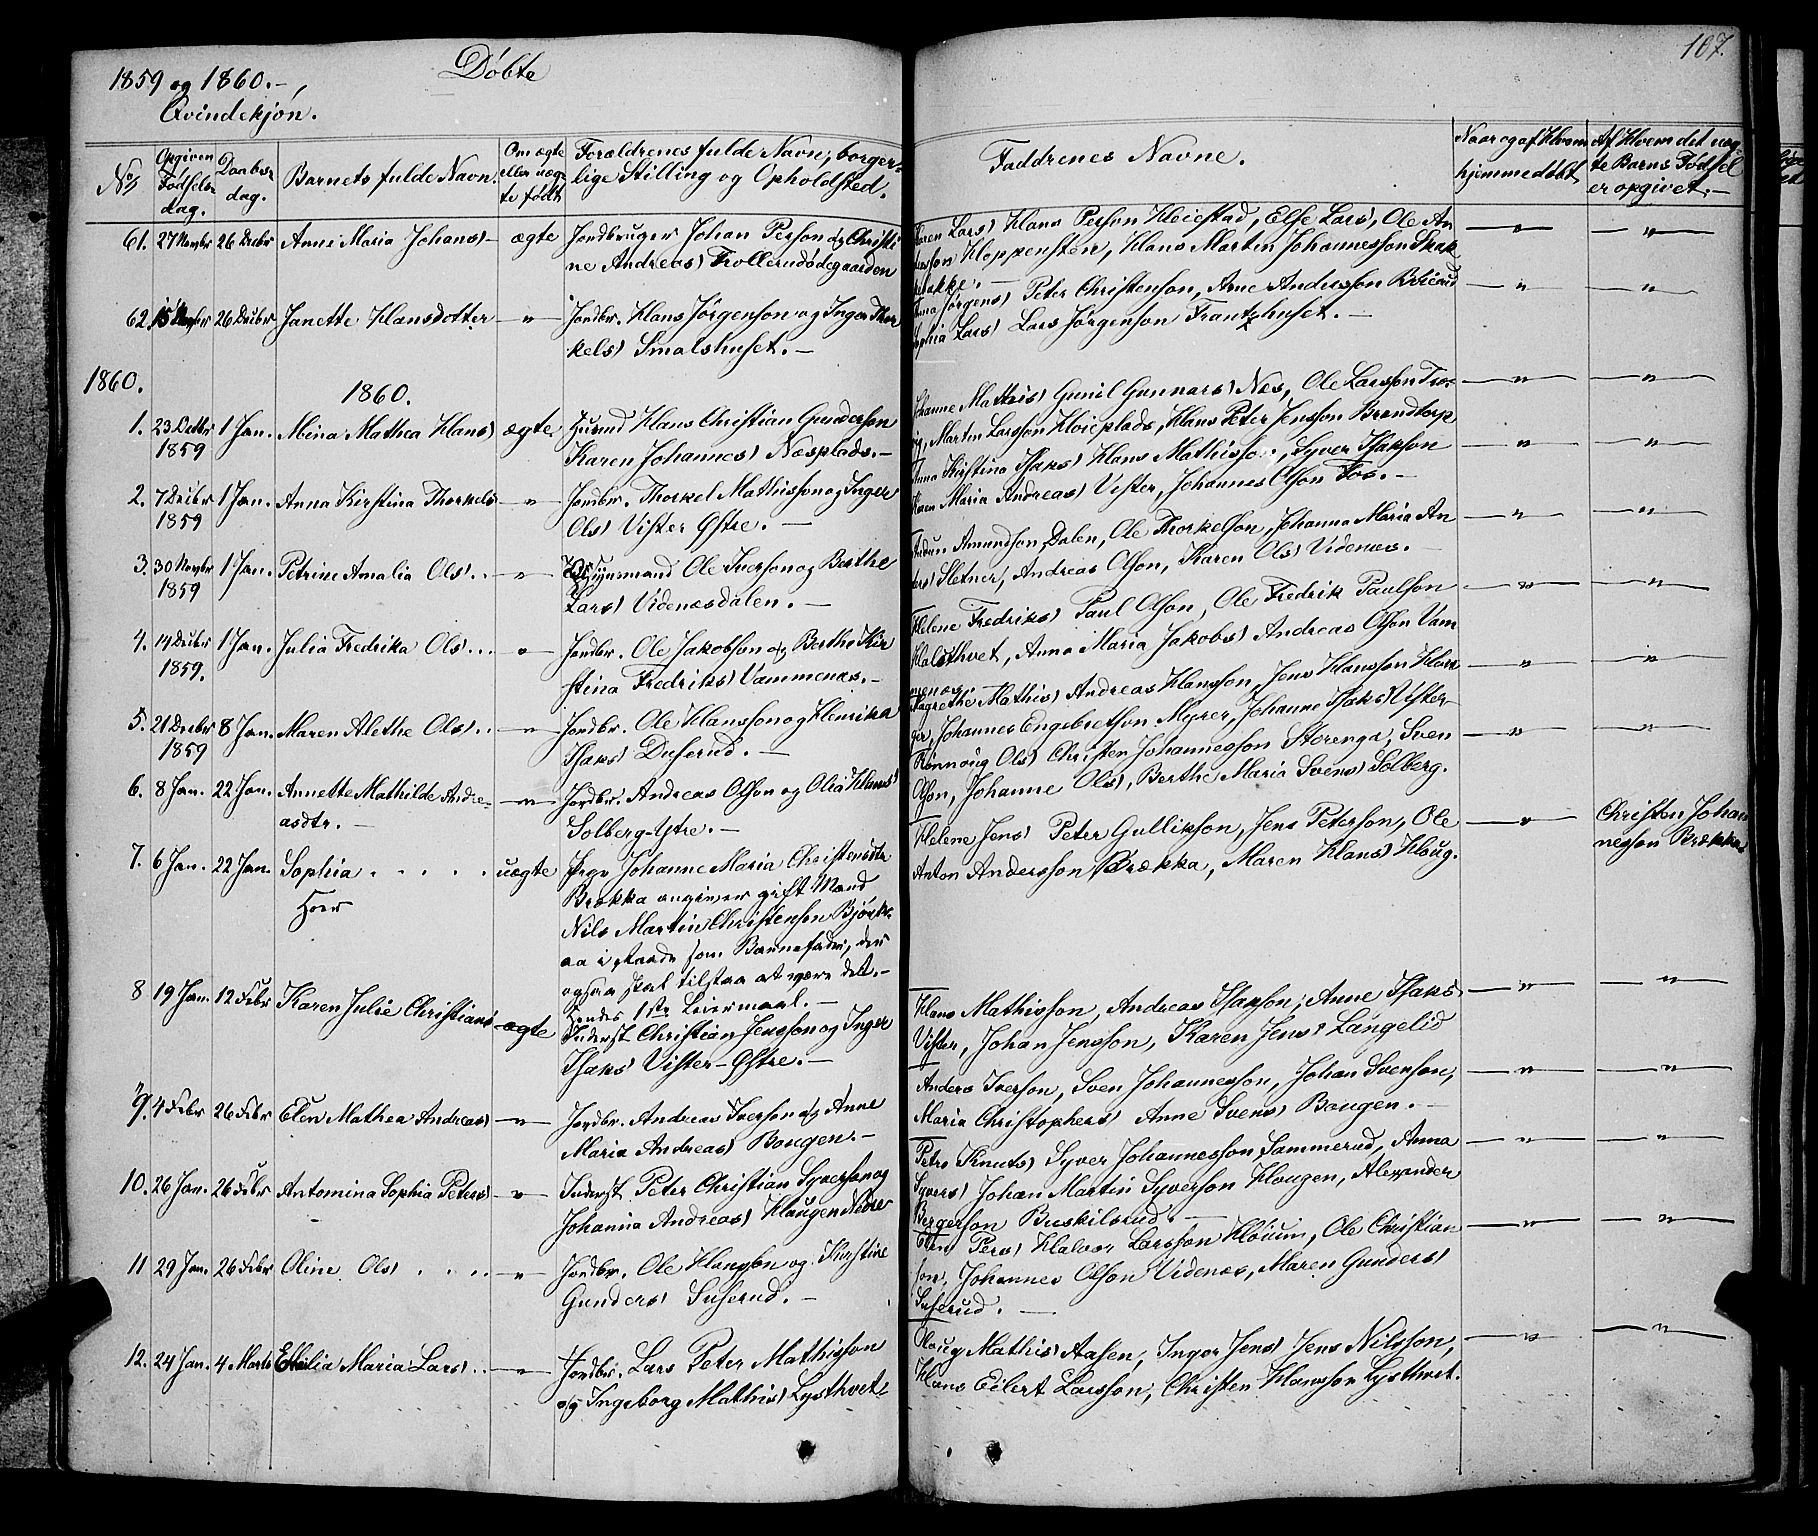 107.
1859 og 1860.—
Døbte
Qvindekjøn.
No
Opgiven Fødsels-dag.
Daabs-dag.
Barnets fulde Navn.
Om ægte eller uæg-te født
Forældrenes fulde Navn, borger-
lige Stilling og Opholdsted.
Faddrenes Navne.
Naar og af Hvem
hjemmedøbt
Af Hvem det uæg-
te Barns Fødsel
er opgivet.—
61. 27 Novbr 26 Decbr Anne Maria Johans) ægte Jordbruger Johan Person og Christi-
ne Andreas) Trollerudødegaarden
Karen Lars) Hans Person Høiestad, Else Lars), Ole An-
Kloppensten, Hans Martin Johannesson Skak-
bakke.—
62. 26 Decbr Janette Hansdotter — " — Jordbr. Hans Jørgenson og Inger Thor-
kels) Smalshuset.—
Jørgens) Peter Christenson, Arne Andersson
Sophia Lars) Lars Jørgenson Frantzhuset.—
1860.
1860.
1. 23 Octbr 1859 1 Jan. Mina Mathea Hans) ægte Husmd Hans Christian Gunderson
Karen Johannes) Næsplads.—
Johanne Mathis) Gunil Gunnars) Næs, Ole Larsson
Martin Larsson Høieplads, Hans Peter Jensson Brandtorp
2. 7 Decbr 1859 1 Jan. Anna Kirstina Thorkels — " — Jordbr. Thorkel Mathisson og Inger
Ols) Vister Østre.—
Anna Kirstina Isaks) Hans Mathisson, Syver Isakson
Karen Maria Andreas) Vister, Johannes Olson Fos.—
3. 30 Novbr 1859 1 Jan. Petrine Amalia Ols) .. — " — Ole Iverson og Berthe
Lars) Videnæsdalen.—
Amundson Dalen, Ole Thorkelson, Johanna Maria An-
ders) Sletner, Andreas Olson, Karen Ols) Videnæs.—
4. 14 Decbr 1859. 1 Jan. Julia Fredrika Ols) ... " Jordbr. Ole Jakobson og Berthe Kir-
stina Fredriks) Vammenæs.—
Helene Fredriks) Paul Olson, Ole Fredrik Paulson
Halsthvet, Anna Maria Jakobs) Andreas Olson Vam-
menæs.—
5. 21 Decbr 1859 8 Jan. Maren Alethe Ols) .. — " — Jordbr. Ole Hansson og Henrika
Isaks) Duserud.—
Magrethe Mathis) Andreas Hansson, Jens Hansson
Johannes Engebretson Myrer, Johanne Isaks)
6. 8 Jan. 22 Jan. Annette Mathilde Andre-
asdtr.— — " — Jordbr. Andreas Olson og Olia Hans)
Solberg-Ytre.—
Rønnoug Ols) Christen Johannesson Storenga, Sven
Olson, Johanne Ols), Berthe Maria Svens) Solberg.
7. 6 Jan. 22 Jan. Sophia . . . . . uægte Pige Johanne Maria Christensdtr
Brækka angiver gift Mand
Nils Martin Christenson Bjørk-
aa i Raade som Barnefader, der
ogsaa skal tilstaa at være det.—
Hendes 1ste Leiermaal.—
Helene Jens) Peter Gullikson, Jens Peterson, Ole
Anton Andersson Brækka, Maren Hans) Houg.
Christen Johan-
nesson Brækka
8 19 Jan. 12 Febr Karen Julie Christians) ægte Inderst Christian Jensson og Inger
Isaks) Vister-Østre.—
Hans Mathisson, Andreas Isakson, Anne Isaks)
Vister, Johan Jensson, Karen Jens) Langelid
9. 4 Febr 26 Febr Elen Mathea Andreas) — " — Jordbr. Andreas Iverson og Anne
Maria Andreas) Bougen.—
Anders Iverson, Sven Johannesson, Johan Svenson,
Maria Christophers) Anne Svens) Bougen.—
10. 26 Jan. 26 Febr Antomina Sophia Peters) — " — Inderst Peter Christian Syverson og
Johanna Andreas) Haugen Nedre
Petro Knuts) Syver Johannesson Sammerud, Anna
Syvers) Johan Martin Syverson Hougen, Alexander
Bergerson Buskilsrud.—
11 29 Jan. 26 Febr Oline Ols) . . . .. — " — Jordbr. Ole Hansson og Kirstine
Gunders) Suserud.—
Elen Pers) Halvor Larsson Høium, Ole Christian-
son, Johannes Olson Videnæs, Maren Gunders)
Suserud.—
12. 24 Jan. 4 Marts Emilia Maria Lars) .. — " — Jordbr. Lars Peter Mathisson
og Ingeborg Mathis) Lysthvet.—
Oloug Mathis) Aasen, Inger Jens) Jens Nilsson,
Hans Eilert Larsson, Christen Hansson Lysthvet.